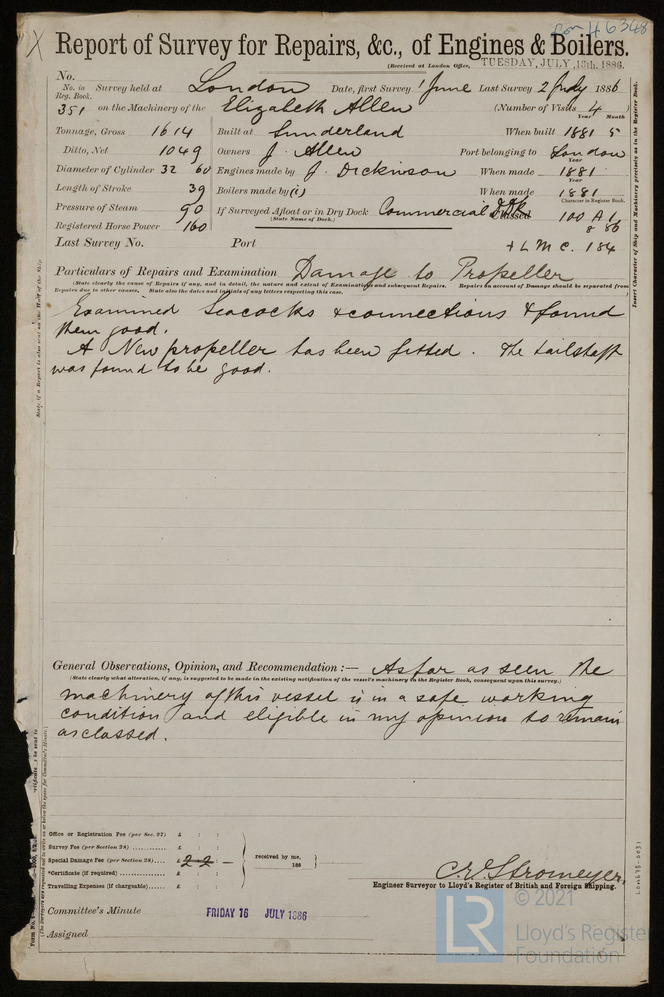 Lon 46348
X
Report of Survey for Repairs, &c., of Engines & Boilers.
(Received at London Office, TUESDAY, JULY ,13th. 1886.
No.
No. in Reg. Book. Survey held at London Date, first Survey 1 June Last Survey 2 July 1886
351 on the Machinery of the Elizabeth Allen (Number of Visits 4
Year Month
Tonnage, Gross 1614 Built at Sunderland When built 1881 5
Ditto, Net 1049 Owners J. Allen Port belonging to London
Year
Diameter of Cylinder 32 60 Engines made by J. Dickinson When made 1881
Year
Length of Stroke 39 Boilers made by (i) When made 1881
Character in Register Book.
Pressure of Steam 90 If Surveyed Afloat or in Dry Dock Commercial D.Dk Classed 100 A1
(State Name of Dock.) 8 86
Registered Horse Power 160
Last Survey No. Port + L M C. 1 84
Particulars of Repairs and Examination Damage to Propeller
(State clearly the cause of Repairs if any, and in detail, the nature and extent of Examinations and subsequent Repairs. Repairs on account of Damage should be separated from
Repairs due to other causes. State also the dates and initials of any letters respecting this case.
Examined Seacocks & connections & found
them good.
A New propeller has been fitted. The tailshaft
was found to be good.
General Observations, Opinion, and Recommendation :— As far as seen the
(State clearly what alteration, if any, is suggested to be made in the existing notification of the vessel's machinery in the Register Book, consequent upon this survey.)
machinery of this vessel is in a safe working
condition and eligible in my opinion to remain
as classed.
Office or Registration Fee (per Sec. 27) £ : :
Survey Fee (per Section 28) £ : :
Special Damage Fee (per Section 28) £ 2 2 —
*Certificate (if required) £ : :
Travelling Expenses (if chargeable) £ : :
received by me,
188
C. E. Stromeyer.
Engineer Surveyor to Lloyd's Register of British and Foreign Shipping.
Committee's Minute FRIDAY 16 JULY 1886
Assigned
Insert Character of Ship and Machinery precisely as in the Register Book.
© 2021
LR
Lloyd's Register
Foundation